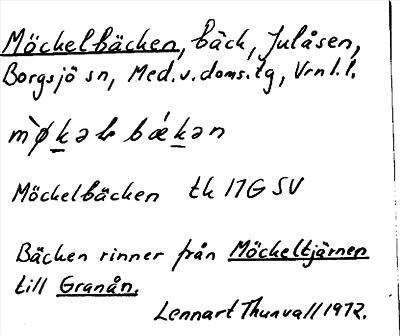 Möckelbäcken, bäck, Julåsen,
Borgsjö sn, Med.v.doms.lg, Vrnl.l.
m`ø̀k̲əl bǽk̲ən
Möckelbäcken tk 17G SV
Bäcken rinner från Möckeltjärnen
till Granån.
Lennart Thunvall 1972.